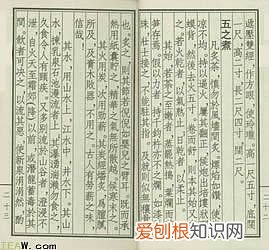 遊壓雙經,作方眼,使玲瓏。
五之煮
凡炙茶,慎勿於風燼間炙,熛焰如鑽,使
涼不均。持以逼火,屢其翻正,候炮出培塿狀蝦
蟆背,然後去火五寸。卷而舒,則本其始又炙
之。若火乾者,以氣熟止;日乾者,以柔止。
其始,若茶之至嫩者,蒸罷熱搗,葉爛而牙
筍存焉。假以力者,持千鈞杵亦不之爛,如漆科
珠,壯士接之,不能駐其指。及就,則似無
也。炙之,則其節若倪倪如嬰兒之臂耳。既而承
熱用紙囊貯之,精華之氣無所散越,候寒末之。
其火,用炭,次用勁薪。其炭曾經燔炙,為膻膩
所及,及膏木敗器,不用之。古人有勞薪之味,
信哉!
其水,用山水上,江水中,井水下。其山
水,揀乳泉、石池慢流者上;其瀑湧湍漱,勿食之。
久食令人有頸疾。又多別流於山谷者,澄浸不
洩,自火天至霜郊(降)以前,或潛龍蓄毒於其
間,飲者可決之,以流其惡,使新泉涓涓然,酌
二十三
爱刨根知识网